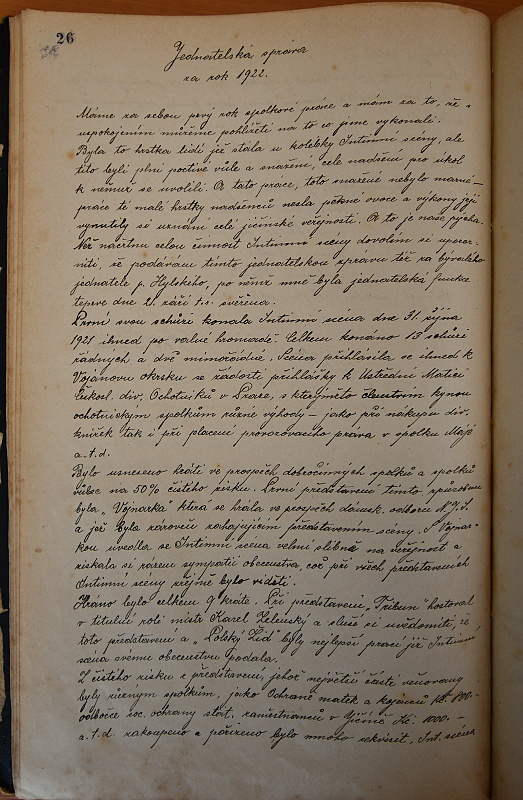 26
Jednatelská správa
za rok 1922.
Máme za sebou prvý rok spolkové práce a mám za to, že s
uspokojením můžeme pohlížeti na to co jsme vykonali.
Byla to hrstka lidí jež stála u kolébky Intimní scény, ale
tito byli plni poctivé vůle a snažení, cele nadšeni pro úkol
k němuž se uvolili. A tato práce, toto snažení nebylo marné –
práce té malé hrstky nadšenců nesla pěkné ovoce a výkony její
vynutily si uznání celé jičínské veřejnosti. A to je naše pýcha.
Než načrtnu celou činnost Intimní scény dovolím si upozor-
niti, že podávám tímto jednatelskou zprávu též za bývalého
jednatele p. Hylského, po němž mně byla jednatelská funkce
teprve dne 21. září t.r. svěřena.
První svou schůzi konala Intimní scéna dne 31. října
1921 ihned po valné hromadě. Celkem konáno 13 schůzí
řádných a dvě mimořádné. Scéna přihlásila se ihned k
Vojanovu okrsku se žádostí přihlášky k Ústřední Matici
Českosl. div. Ochotníků v Praze, s kterýmžto členstvím kynou
ochotnickým spolkům různé výhody – jako při nákupu div.
knížek tak i při placení provozovacího práva v spolku Máje
a.t.d.
Bylo usneseno hráti ve prospěch dobročinných spolků a spolků
vůbec na 50% čistého zisku. První představení tímto způsobem
byla „Vojnarka" která se hrála ve prospěch dámsk. odboru N.J.S.
a jež byla zároveň zahajujícím představením scény. S Vojnar-
kou uvedla se Intimní scéna velmi slibně na veřejnost a
získala si rázem sympatií obecenstva, což při všech představeních
Intimní scény zřejmě bylo viděti.
Hráno bylo celkem 9 kráte. Při představení „Tribun" hostoval
v titulní roli mistr Karel Želenský a sluší si uvědomiti, že
toto představení a „Polský Žid" byly nejlepší prací již Intimní
scéna svému obecenstvu podala.
Z čistého zisku z představení, jehož největší části věnovány
byly různým spolkům, jako Ochraně matek a kojenců Kč. 800.-
odbočce soc. ochrany stát. zaměstnanců v Jičíně Kč. 1000.–
a.t.d. zakoupeno a pořízeno bylo mnoho rekvisit. Int. scéna